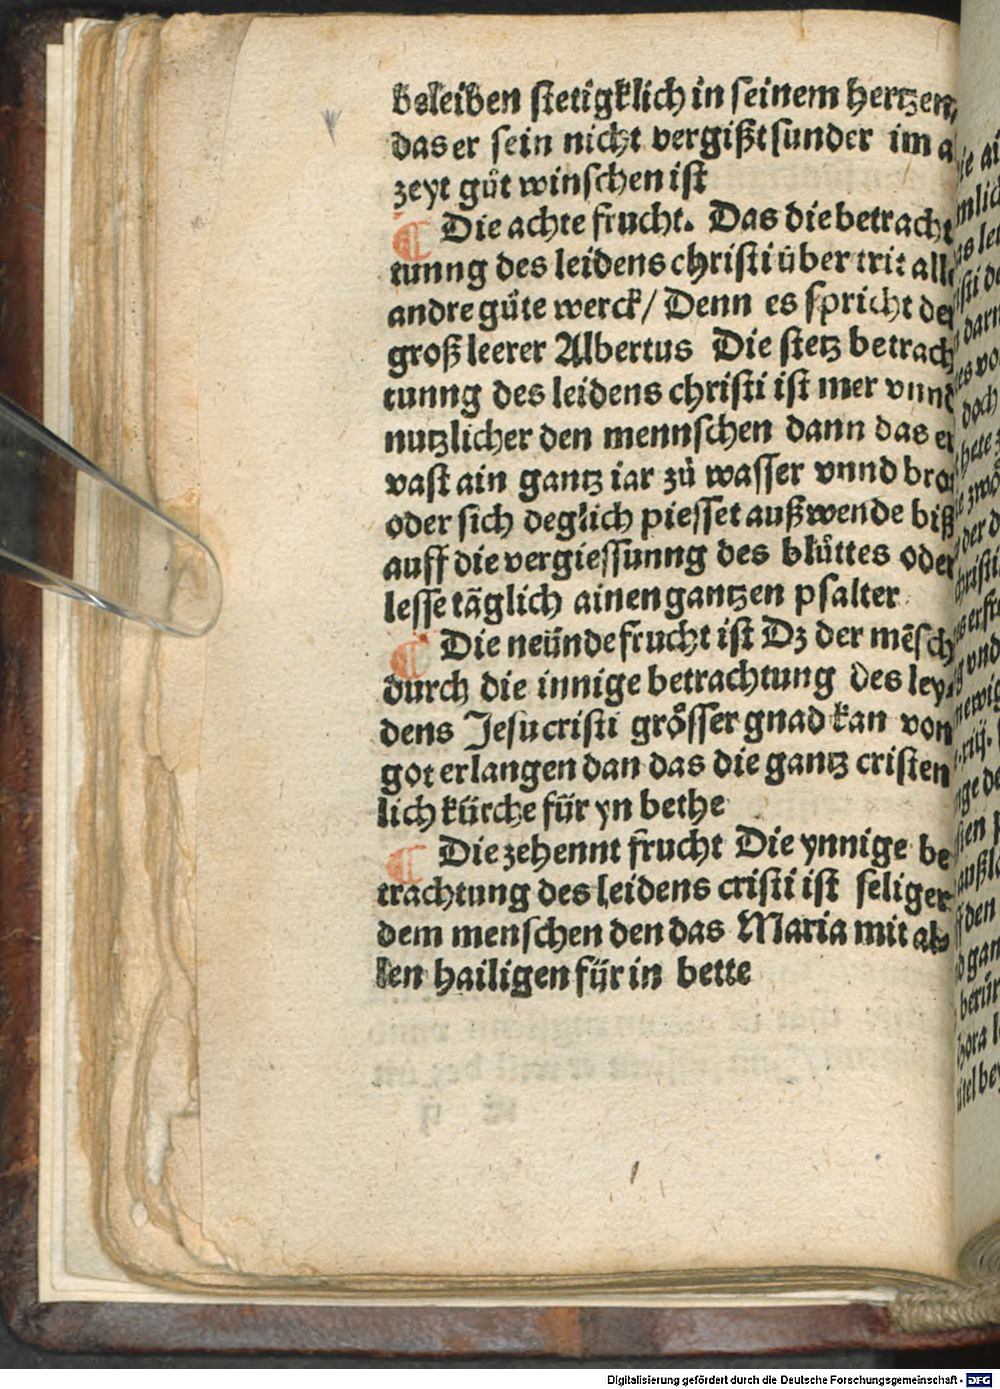 beleiben stetigklich in seinem hertzen,
das er sein nicht vergißt sunder im a
zeyt gůt winschen ist
¶ Die achte frucht. Das die betracht
tunng des leidens christi über trit alle
andre gůte werck/ Denn es spricht der
groß leerer Albertus Die stetz betrach
tunng des leidens christi ist mer vnnd
nutzlicher den mennschen dann das er
vast ain gantz iar zů wasser vnnd bro
oder sich deglich piesset außwende biß
auff die vergiessunng des blůttes oder
lesse täglich ainen gantzen psalter
¶ Die neünde frucht ist Dz der mēsch
durch die innige betrachtung des ley-
dens Jesu cristi grösser gnad kan von
got erlangen dan das die gantz cristen
lich kürche für yn bethe
¶ Die zehennt frucht Die ynnige be
trachtung des leidens cristi ist seliger
dem menschen den das Maria mit al
len hailigen für in bette
Digitalisierung gefördert durch die Deutsche Forschungsgemeinschaft - DFG